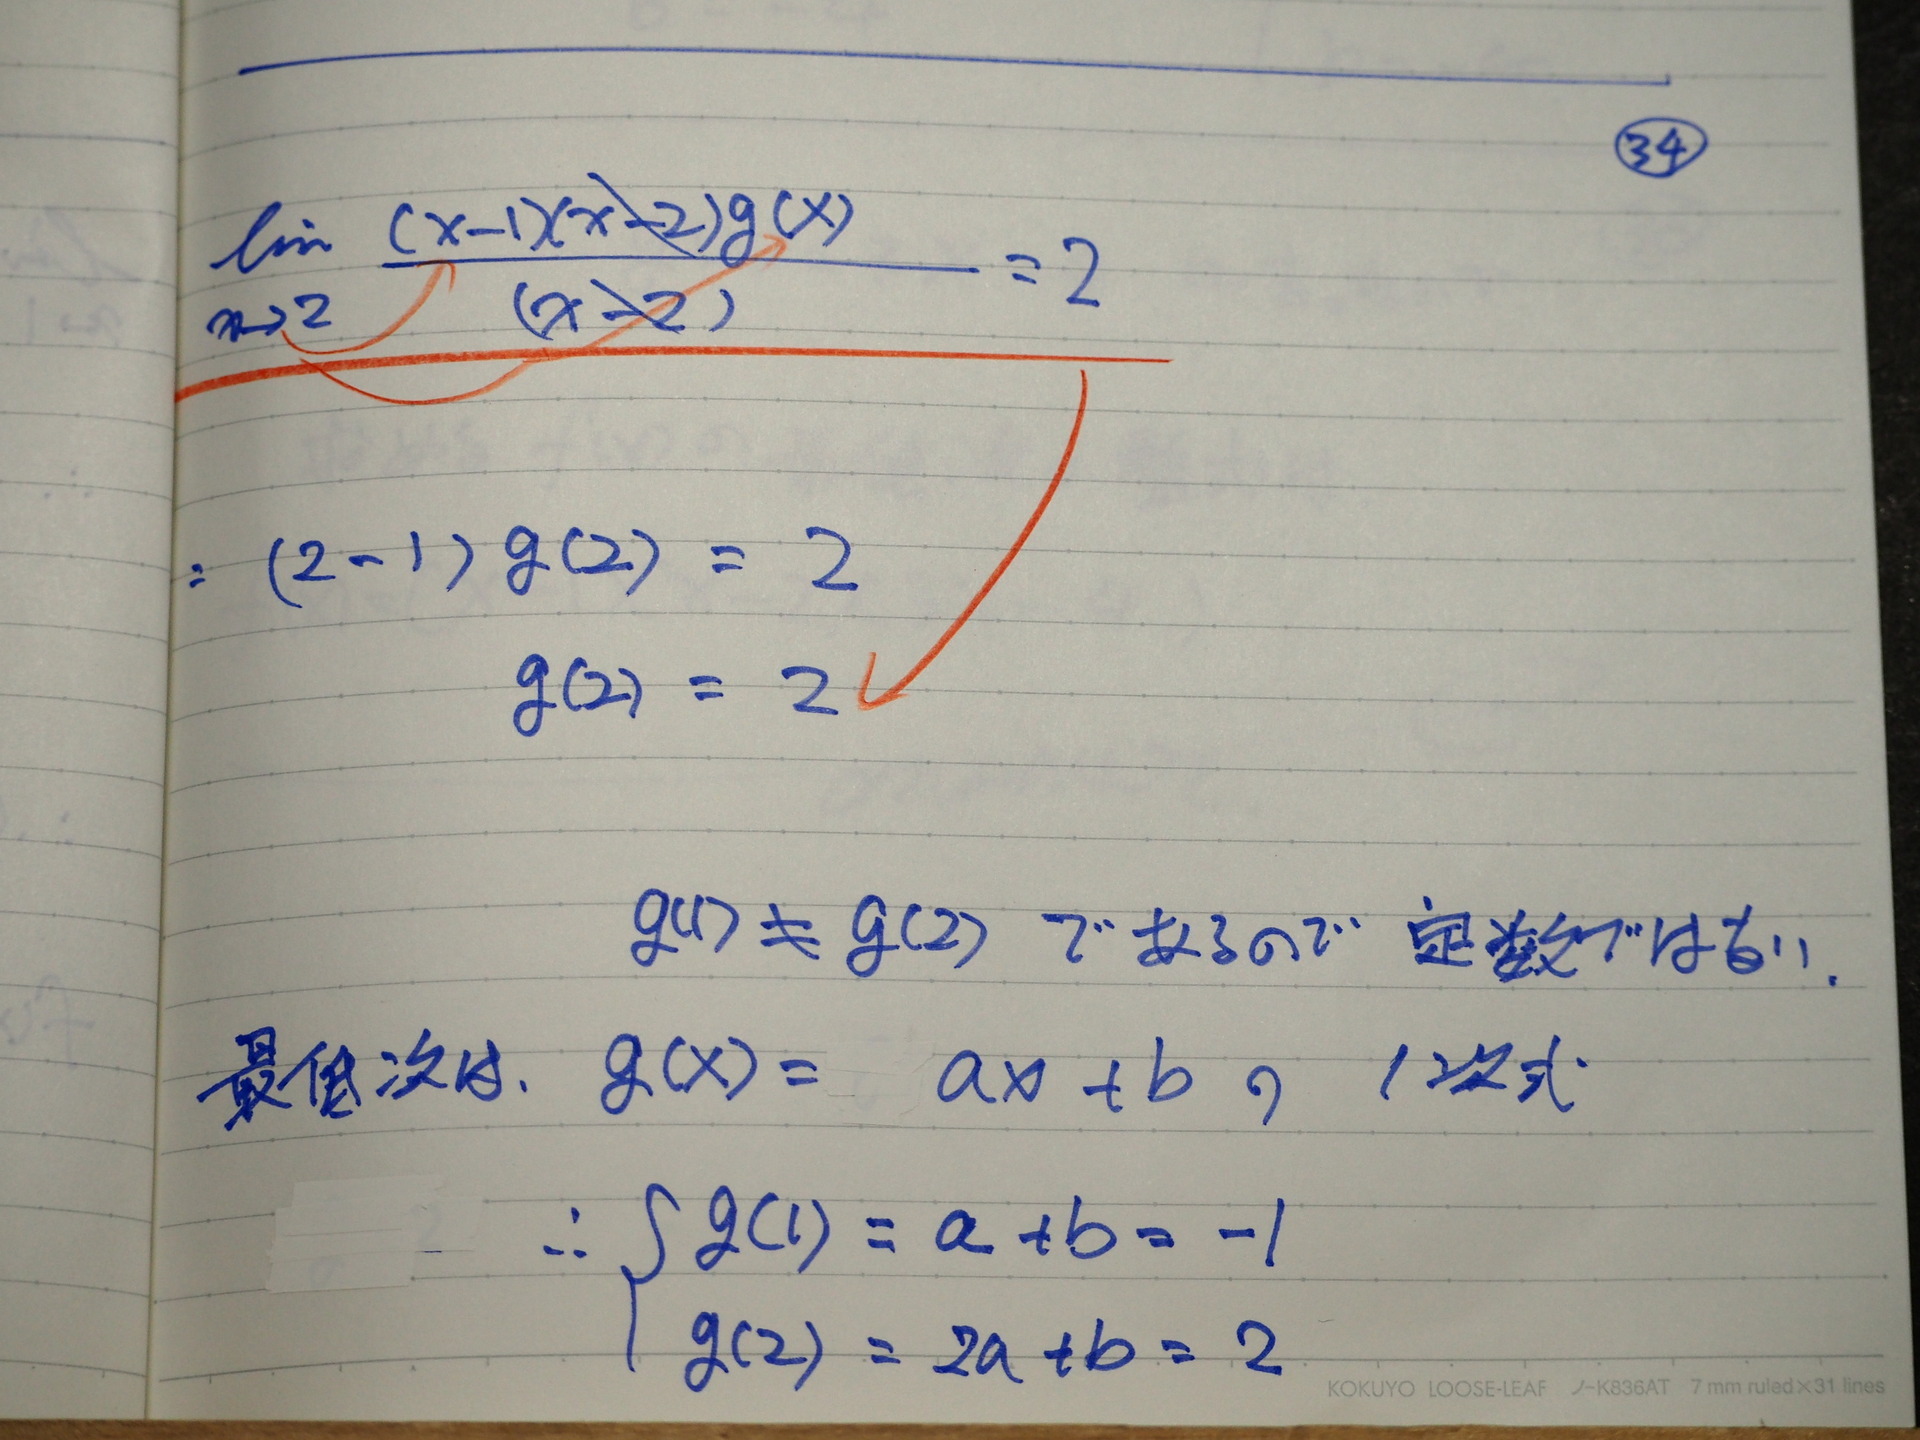 34
lim x→2 (x-1)(x-2)g(x) / (x-2) = 2
= (2-1) g(2) = 2
g(2) = 2
g(1) ≠ g(2) であるので 定数ではない.
最低次は、 g(x) = ax + b の 1次式
∴ { g(1) = a + b = -1
g(2) = 2a + b = 2
KOKUYO LOOSE-LEAF ノ-K836AT 7 mm ruled×31 lines